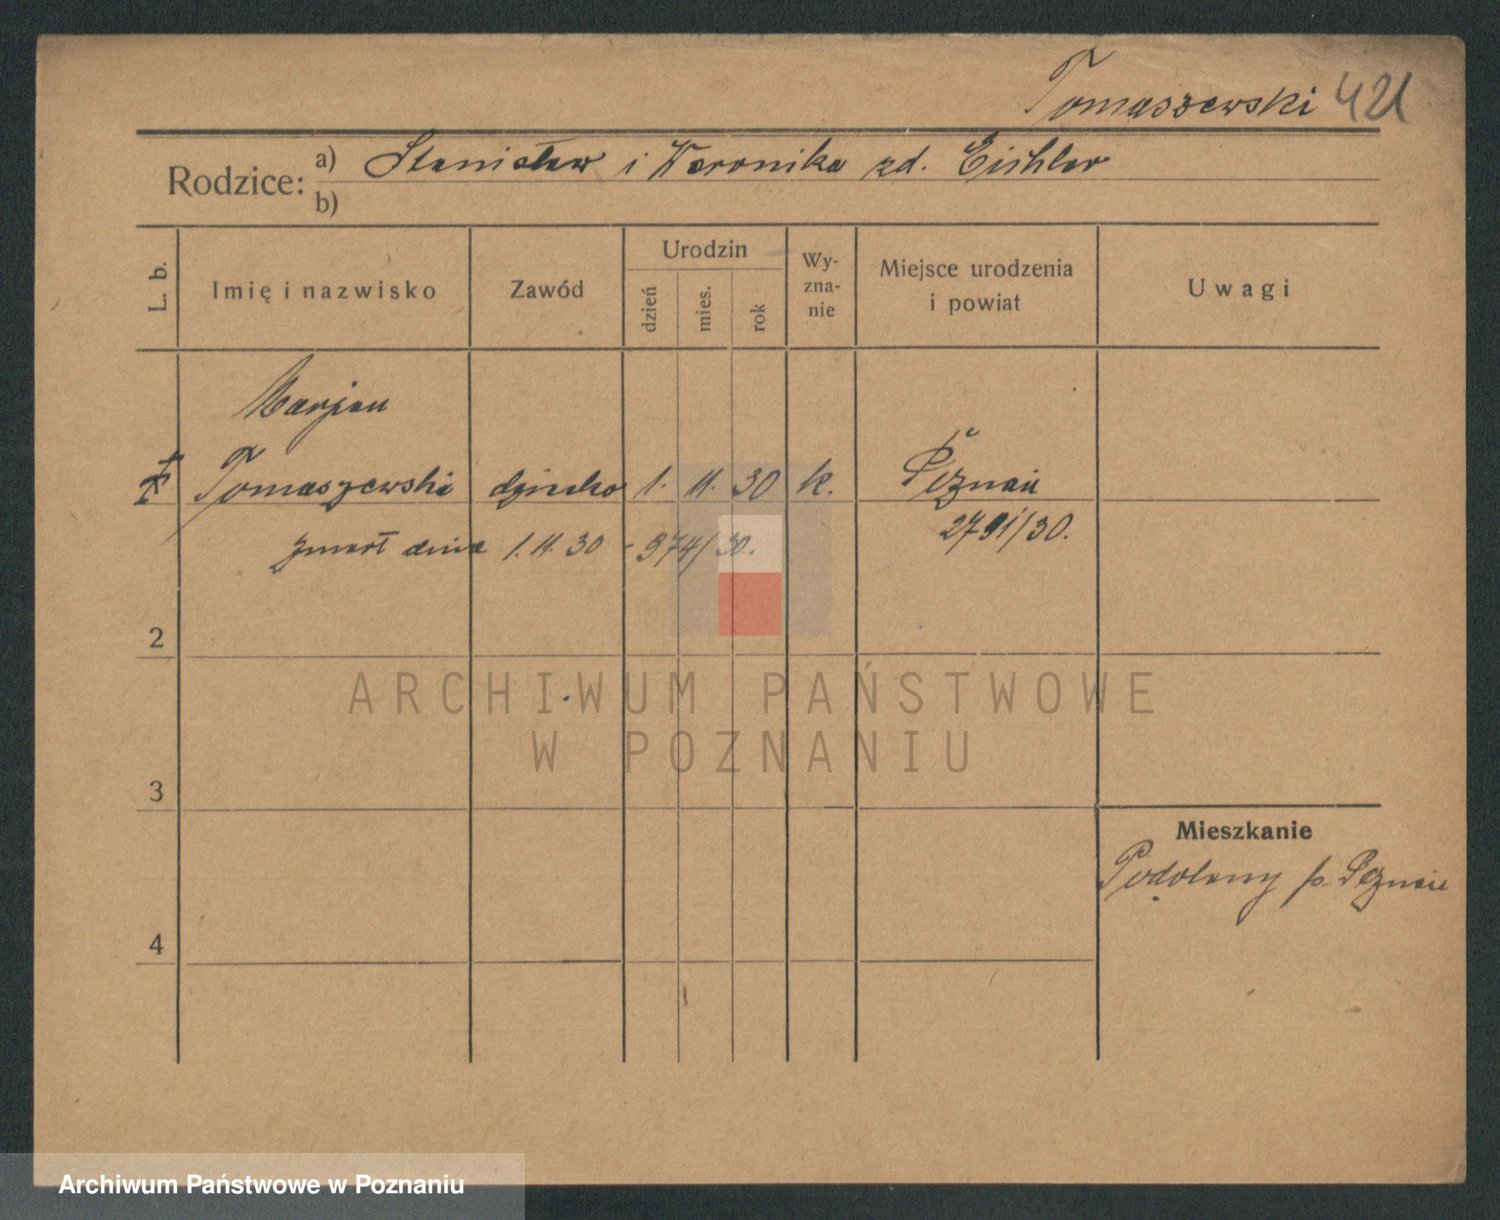 Tomaszewski 421
Rodzice: a) Stanisław i Weronika zd. Eichler
b)
L. b.
Imię i nazwisko
Zawód
Urodzin
dzień
mies.
rok
Wy-
zna-
nie
Miejsce urodzenia
i powiat
Uwagi
Marjan
1 Tomaszewski dziecko 1. 11. 30 k. Poznań
zmarł dnia 1. 11. 30 - 974/30. 2791/30.
2
3
4
Mieszkanie
Podolany p. Poznań
ARCHIWUM PAŃSTWOWE
W POZNANIU
Archiwum Państwowe w Poznaniu